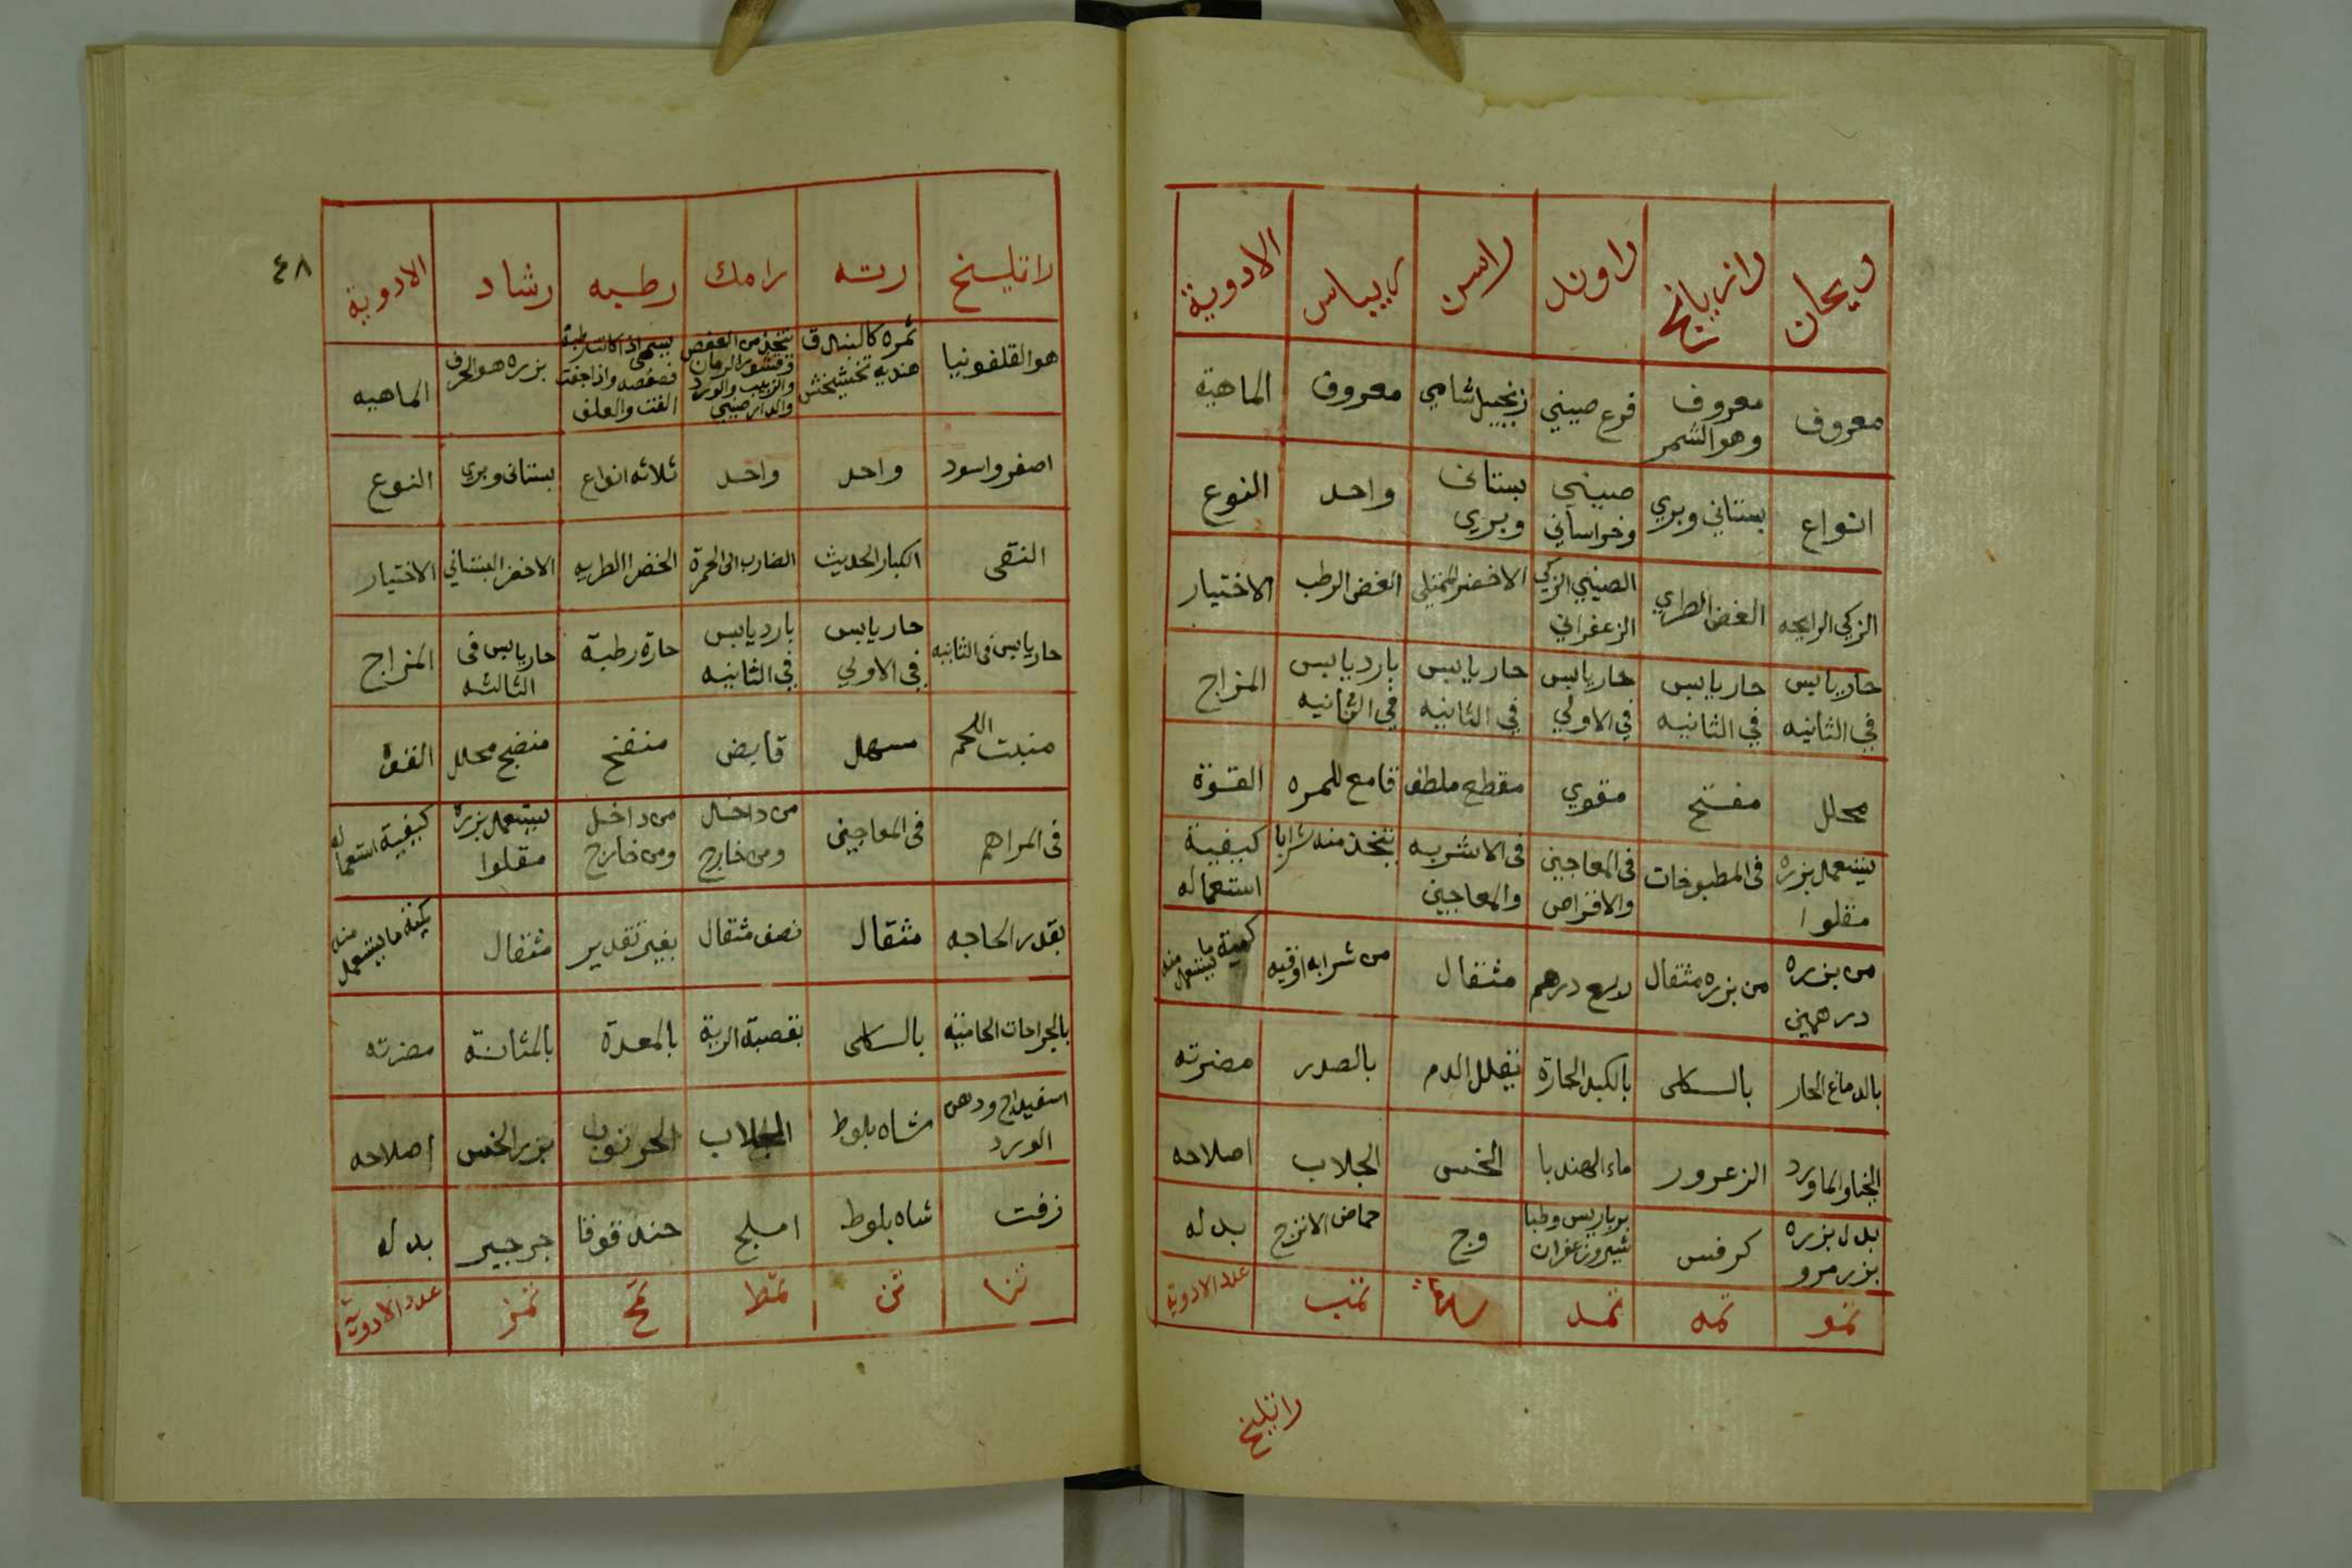 ريحان رازيانج راوند راسن ريباس الادوية
معروف معروف وهو الشمر قرع صيني زنجبيل شامي معروف الماهية
انواع بستاني وبري صيني وخراساني بستاني وبري واحد النوع
الزكي الرايحه الغض الطري الصيني الزكي الزعفراني الاخضر الممتلي الغض الرطب الاختيار
حار يابس في الثانيه حار يابس في الثانيه حار يابس في الاولي حار يابس في الثانيه بارد يابس في الثانيه المزاج
محلل مفتح مقوي مقطع ملطف قامع للمره القوة
يستعمل بزره مقلوا في المطبوخات في المعاجين والاقراص في الاشربه والمعاجين يتخذ منه شرابا كيفية استعماله
من بزره درهمين من بزره مثقال ربع درهم مثقال من شرابه اوقيه كمية ما يستعمل منه
بالدماغ الحار بالكلى بالكبد الحارة يقلل الدم بالصدر مضرته
والماورد الزعرور ماء الهندبا الخس الجلاب اصلاحه
بدل بزره بزر مرو كرفس وج حماض الاترج بدله
ثمو ثمه ثمد ثمب عدد الادوية
راتليخ
٤٨
راتليخ رته رامك رطبه رشاد الادوية
هو القلفونيا ثمره كالبندق هنديه تتخذ من العفص وقشور الرمان والزبيب والورد والدارصيني يسمى اذا كانت رطبة فصفصه واذا جفت القت والعلف بزره هو الحرف الماهيه
اصفر واسود واحد واحد ثلاثه انواع بستاني وبري النوع
النقى الكبار الحديث الضارب الى الحمرة الخضرا الطريه الاخضر البستاني الاختيار
حار يابس في الثانيه حار يابس في الاولي بارد يابس في الثانيه حارة رطبة حار يابس في الثالثه المزاج
منبت اللحم مسهل قابض منفخ منضج محلل القوة
في المراهم في المعاجين من داخل ومن خارج من داخل ومن خارج يستعمل بزره مقلوا كيفية استعماله
بقدر الحاجه مثقال نصف مثقال بغير تقدير مثقال كمية ما يستعمل منه
بالجراحات بالكلى بقصبة الرية بالمعدة بالمثانة مضرته
اسفيداج ودهن الورد شاه بلوط الجلاب الخرنوب بزر الخس اصلاحه
زفت شاه بلوط املج حندقوقا جرجير بدله
ثنا ثن ثمط ثمح ثمز عدد الادوية